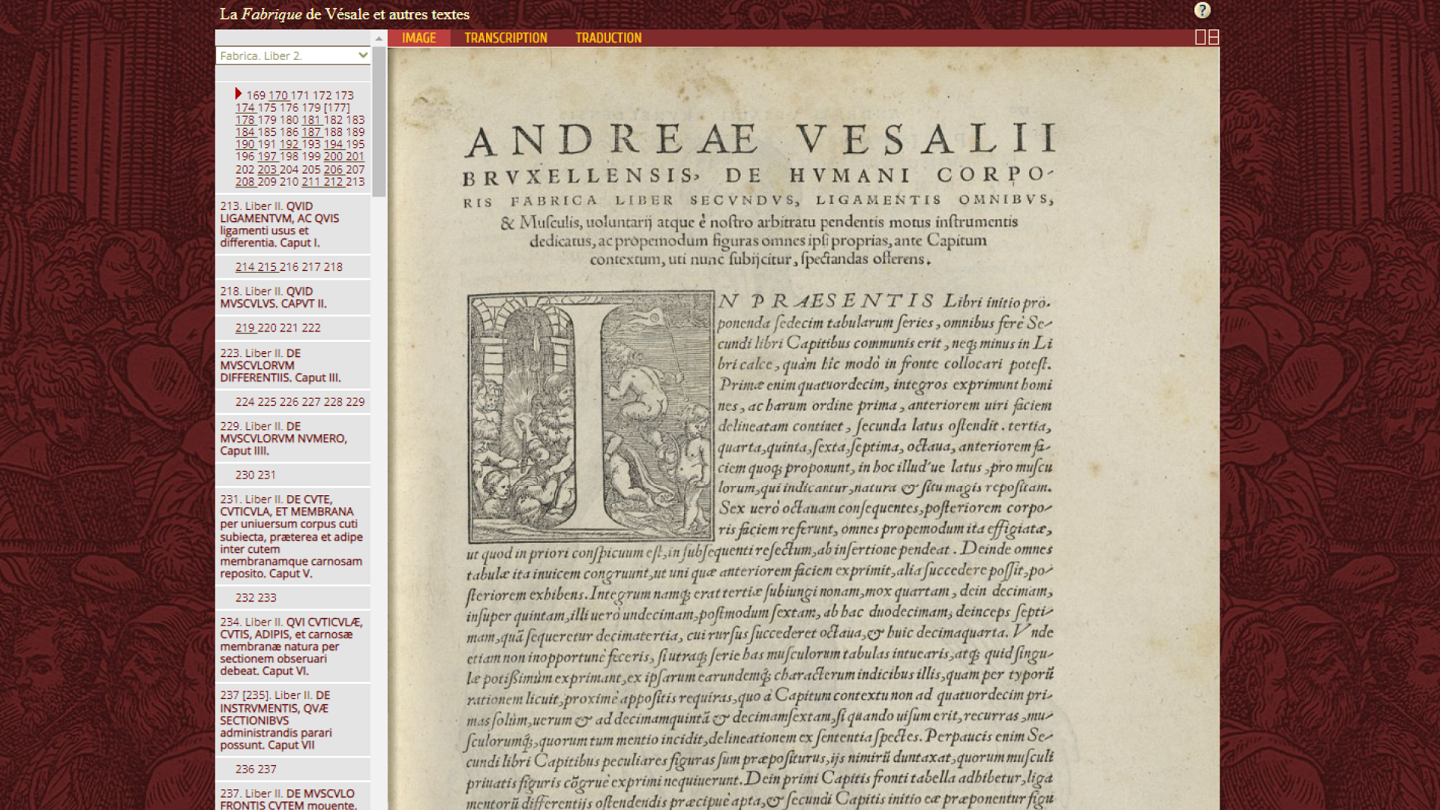 La Fabrique de Vésale et autres textes
?
IMAGE TRANSCRIPTION TRADUCTION
Fabrica. Liber 2.
169 170 171 172 173
174 175 176 179 [177]
178 179 180 181 182 183
184 185 186 187 188 189
190 191 192 193 194 195
196 197 198 199 200 201
202 203 204 205 206 207
208 209 210 211 212 213
213. Liber II. QVID
LIGAMENTVM, AC QVIS
ligamenti usus et
differentia. Caput I.
214 215 216 217 218
218. Liber II. QVID
MVSCVLVS. CAPVT II.
219 220 221 222
223. Liber II. DE
MVSCVLORVM
DIFFERENTIIS. Caput III.
224 225 226 227 228 229
229. Liber II. DE
MVSCVLORVM NVMERO,
Caput IIII.
230 231
231. Liber II. DE CVTE,
CVTICVLA, ET MEMBRANA
per uniuersum corpus cuti
subiecta, præterea et adipe
inter cutem
membranamque carnosam
reposito. Caput V.
232 233
234. Liber II. QVI CVTICVLÆ,
CVTIS, ADIPIS, et carnosæ
membranæ natura per
sectionem obseruari
debeat. Caput VI.
237 [235]. Liber II. DE
INSTRVMENTIS, QVÆ
SECTIONIBVS
administrandis parari
possunt. Caput VII
236 237
237. Liber II. DE MVSCVLO
FRONTIS CVTEM mouente.
ANDREAE VESALII
BRVXELLENSIS, DE HVMANI CORPO-
RIS FABRICA LIBER SECVNDVS, LIGAMENTIS OMNIBVS,
& Muſculis, uoluntarij atque è noſtro arbitratu pendentis motus inſtrumentis
dedicatus, ac propemodum figuras omnes ipſi proprias, ante Capitum
contextum, uti nunc ſubijcitur, ſpectandas offerens.
IN PRAESENTIS Libri initio pro-
ponenda ſedecim tabularum ſeries, omnibus ferè Se-
cundi libri Capitibus communis erit, neq; minus in Li
bri calce, quàm hic modò in fronte collocari poteſt.
Primæ enim quatuordecim, integros exprimunt homi
nes, ac harum ordine prima, anteriorem uiri faciem
delineatam continet, ſecunda latus oſtendit. tertia,
quarta, quinta, ſexta, ſeptima, octaua, anteriorem fa-
ciem quoq; proponunt, in hoc illud'ue latus, pro muſcu
lorum, qui indicantur, natura & ſitu magis repoſitam.
Sex uerò octauam conſequentes, poſteriorem corpo-
ris faciem referunt, omnes propemodum ita effigiatæ,
ut quod in priori conſpicuum eſt, in ſubſequenti reſectum, ab inſertione pendeat. Deinde omnes
tabulæ ita inuicem congruunt, ut uni quæ anteriorem faciem exprimit, alia ſuccedere poſſit, po-
ſteriorem exhibens. Integrum namq; erat tertiæ ſubiungi nonam, mox quartam, dein decimam,
inſuper quintam, illi uerò undecimam, poſtmodum ſextam, ab hac duodecimam, deinceps ſepti-
mam, quã ſequeretur decimatertia, cui rurſus ſuccederet octaua, & huic decimaquarta. Vnde
etiam non inopportunè feceris, ſi utraq; ſerie has muſculorum tabulas intuearis, atq; quid ſingu-
læ potiſſimùm exprimant, ex ipſarum earundemq; characterum indicibus illis, quam per typorũ
rationem licuit, proximè appoſitis requiras, quo à Capitum contextu non ad quatuordecim pri-
mas ſolùm, uerum & ad decimamquintã & decimamſextam, ſi quando uiſum erit, recurras, mu-
ſculorumq;, quorum tum mentio incidit, delineationem ex ſententia ſpectes. Perpaucis enim Se-
cundi libri Capitibus peculiares figuras ſum præpoſiturus, ijs nimirũ duntaxat, quorum muſculi
priuatis figuris cõgruè exprimi nequiuerunt. Dein primi Capitis fronti tabella adhibetur, liga
mentorũ differentijs oſtendendis præcipuè apta, & ſecundi Capitis initio eæ præponentur figu